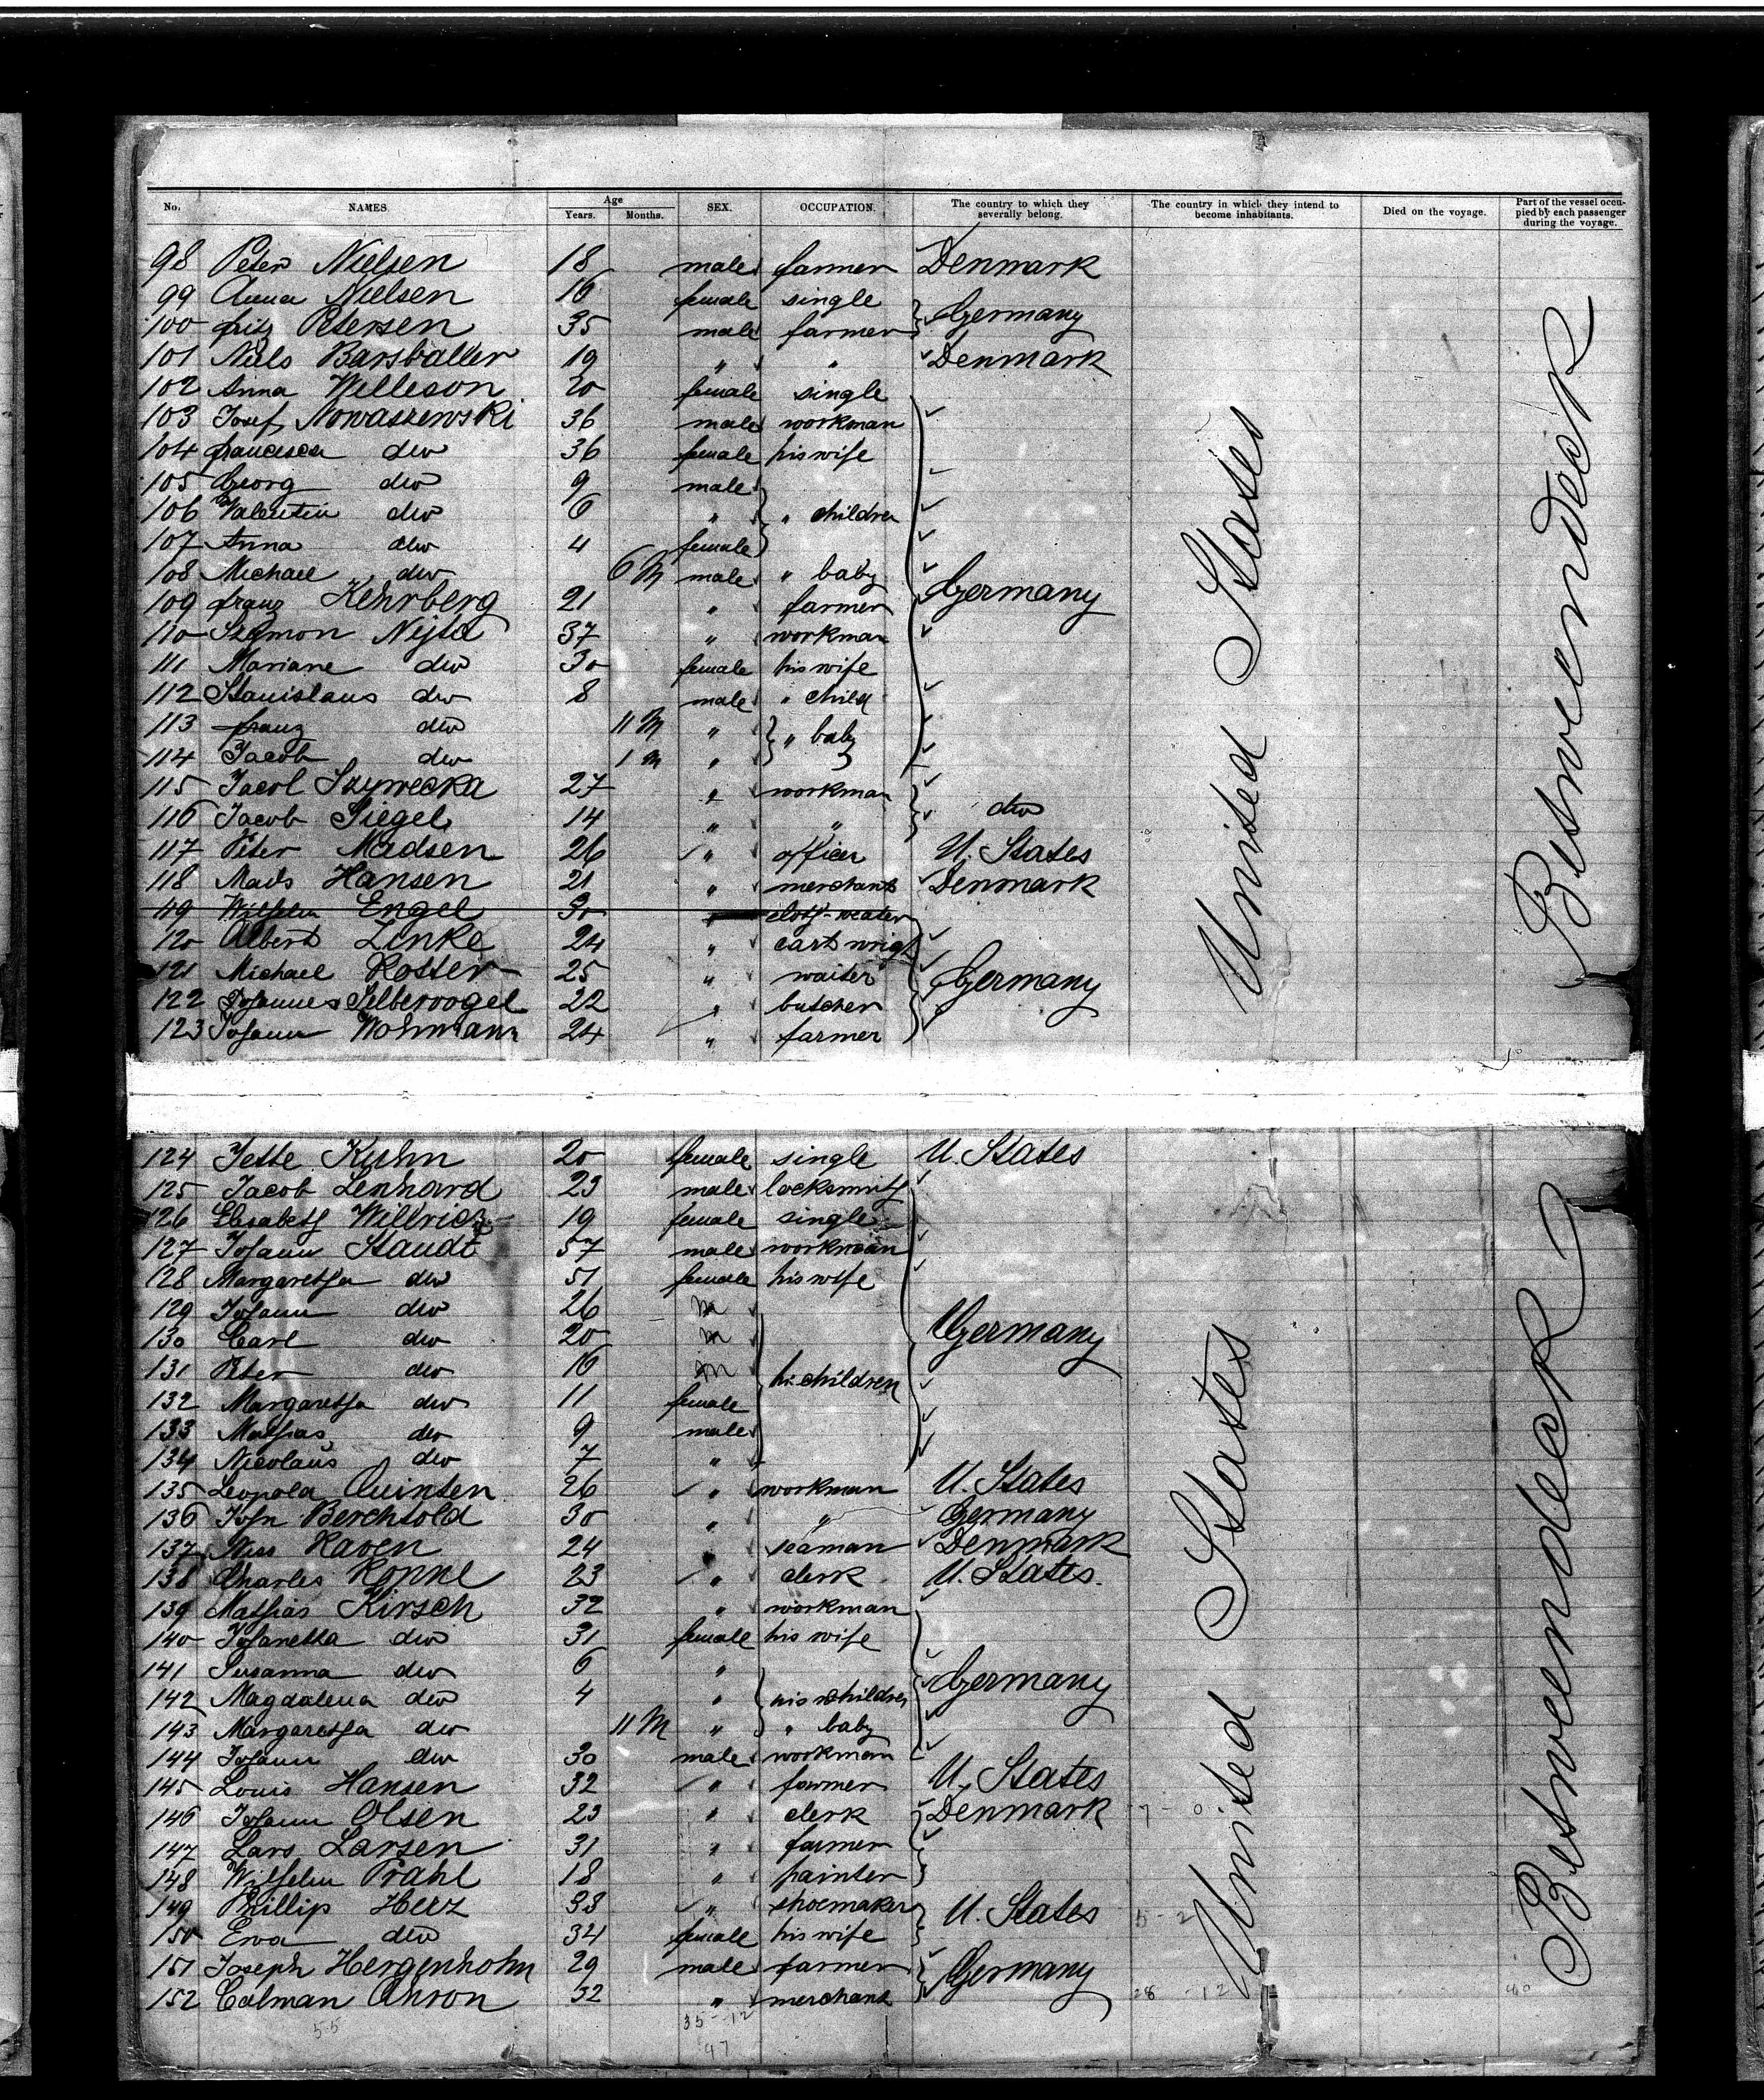 No. NAMES. Age Years. Months. SEX. OCCUPATION. The country to which they severally belong. The country in which they intend to become inhabitants. Died on the voyage. Part of the vessel occupied by each passenger during the voyage.
98 Peter Nielsen 18 male farmer Denmark
99 Anna Nielsen 16 female single
100 Fritz Petersen 35 male farmer Germany
101 Niels 19 " " Denmark
102 Anna Welleson 20 female single
103 Josef Nowaszewski 36 male workman
104 Francesca dto 36 female his wife
105 Georg dto 9 male
106 Valentin dto 6 " " children
107 Anna dto 4 female
108 Michael dto 6 M male " baby
109 Franz Kehrberg 21 " farmer Germany
110 Szymon Nejta 37 " workman
111 Mariane dto 30 female his wife
112 Stanislaus dto 8 male " child
113 Franz dto 11 M " " baby
114 Jacob dto 1 M "
115 Jacob Szywecka 27 " workman
116 Jacob Siegel 14 " " dto
117 Peter Madsen 26 " officer U. States
118 Mads Hansen 21 " merchant Denmark
119 Wilhelm Engel 30 "
120 Albert Zinke 24 " cartwright
121 Michael Rotter 25 " waiter Germany
122 Johannes Selbervogel 22 " butcher
123 Johann Wohmann 24 " farmer
United States
Betweendeck
124 Jette Kuhn 20 female single U. States
125 Jacob Lenhard 23 male locksmith
126 Elisabeth Willrich 19 female single
127 Johann Staudt 57 male workman
128 Margaretha dto 51 female his wife
129 Johann dto 26 m
130 Carl dto 20 m Germany
131 Peter dto 16 m his children
132 Margaretha dto 11 female
133 Mathias dto 9 male
134 Nicolaus dto 7 "
135 Leopold Quinten 26 " workman U. States
136 John Berchtold 30 " " Germany
137 Niss Raven 24 " seaman Denmark
138 Charles Ronne 23 " clerk U. States.
139 Mathias Kirsch 32 " workman
140 Johanetta dto 31 female his wife
141 Susanna dto 6 "
142 Magdalena dto 4 " his children Germany
143 Margaretha dto 11 M " " baby
144 Johann dto 30 male workman
145 Louis Hansen 32 " farmer U. States
146 Johann Olsen 23 " clerk Denmark
147 Lars Larsen 31 " farmer
148 Wilhelm Prahl 18 " painter
149 Phillip Herz 38 " shoemaker U. States
150 Ewa dto 34 female his wife
151 Joseph Hergenhohn 29 male farmer Germany
152 Calman Ahron 32 " merchant
United States
Betweendeck
55 35-12
47